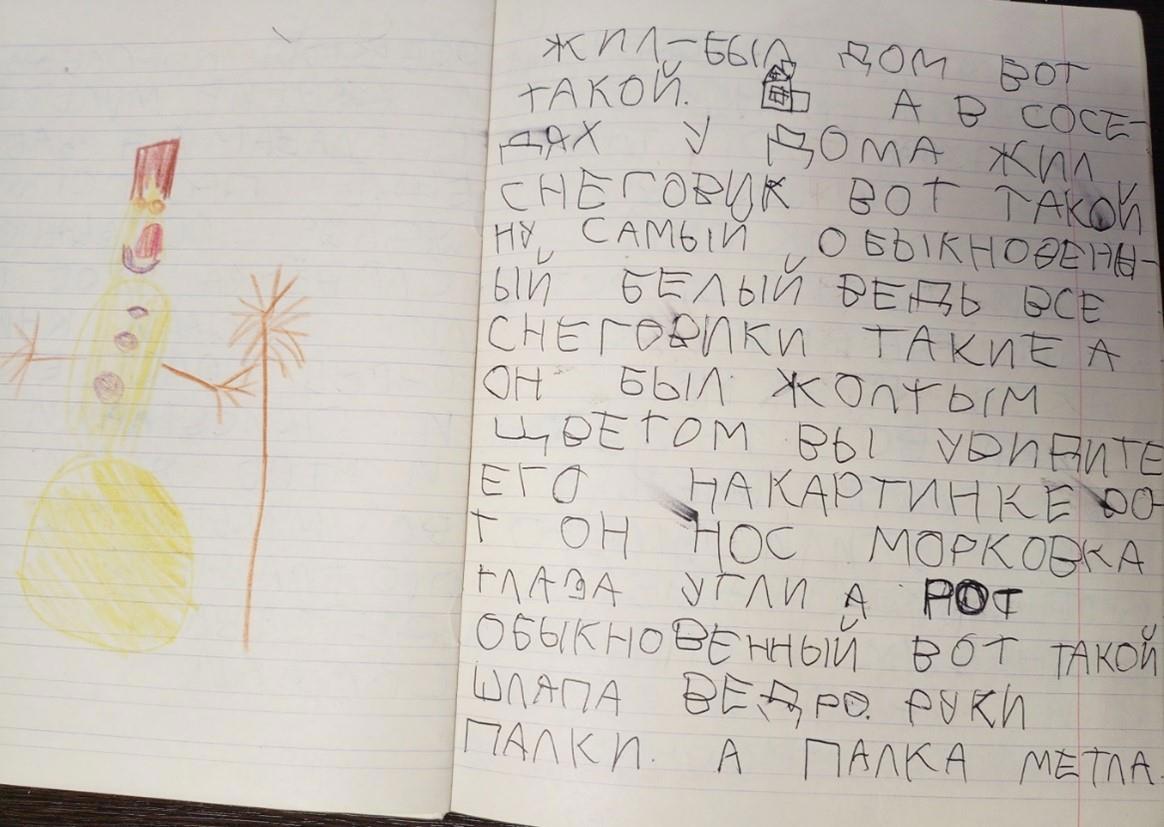 ЖИЛ-БЫЛ ДОМ ВОТ
ТАКОЙ. А В СОСЕ-
ДЯХ У ДОМА ЖИЛ
СНЕГОВИК ВОТ ТАКОЙ
НУ САМЫЙ ОБЫКНОВЕНН-
ЫЙ БЕЛЫЙ ВЕДЬ ВСЕ
СНЕГОВИКИ ТАКИЕ А
ОН БЫЛ ЖОЛТЫМ
ЦВЕТОМ ВЫ УВИДИТЕ
ЕГО НАКАРТИНКЕ ВО-
Т ОН НОС МОРКОВКА
ГЛАЗА УГЛИ А РОТ
ОБЫКНОВЕННЫЙ ВОТ ТАКОЙ
ШЛЯПА ВЕДРО. РУКИ
ПАЛКИ. А ПАЛКА МЕТЛА.